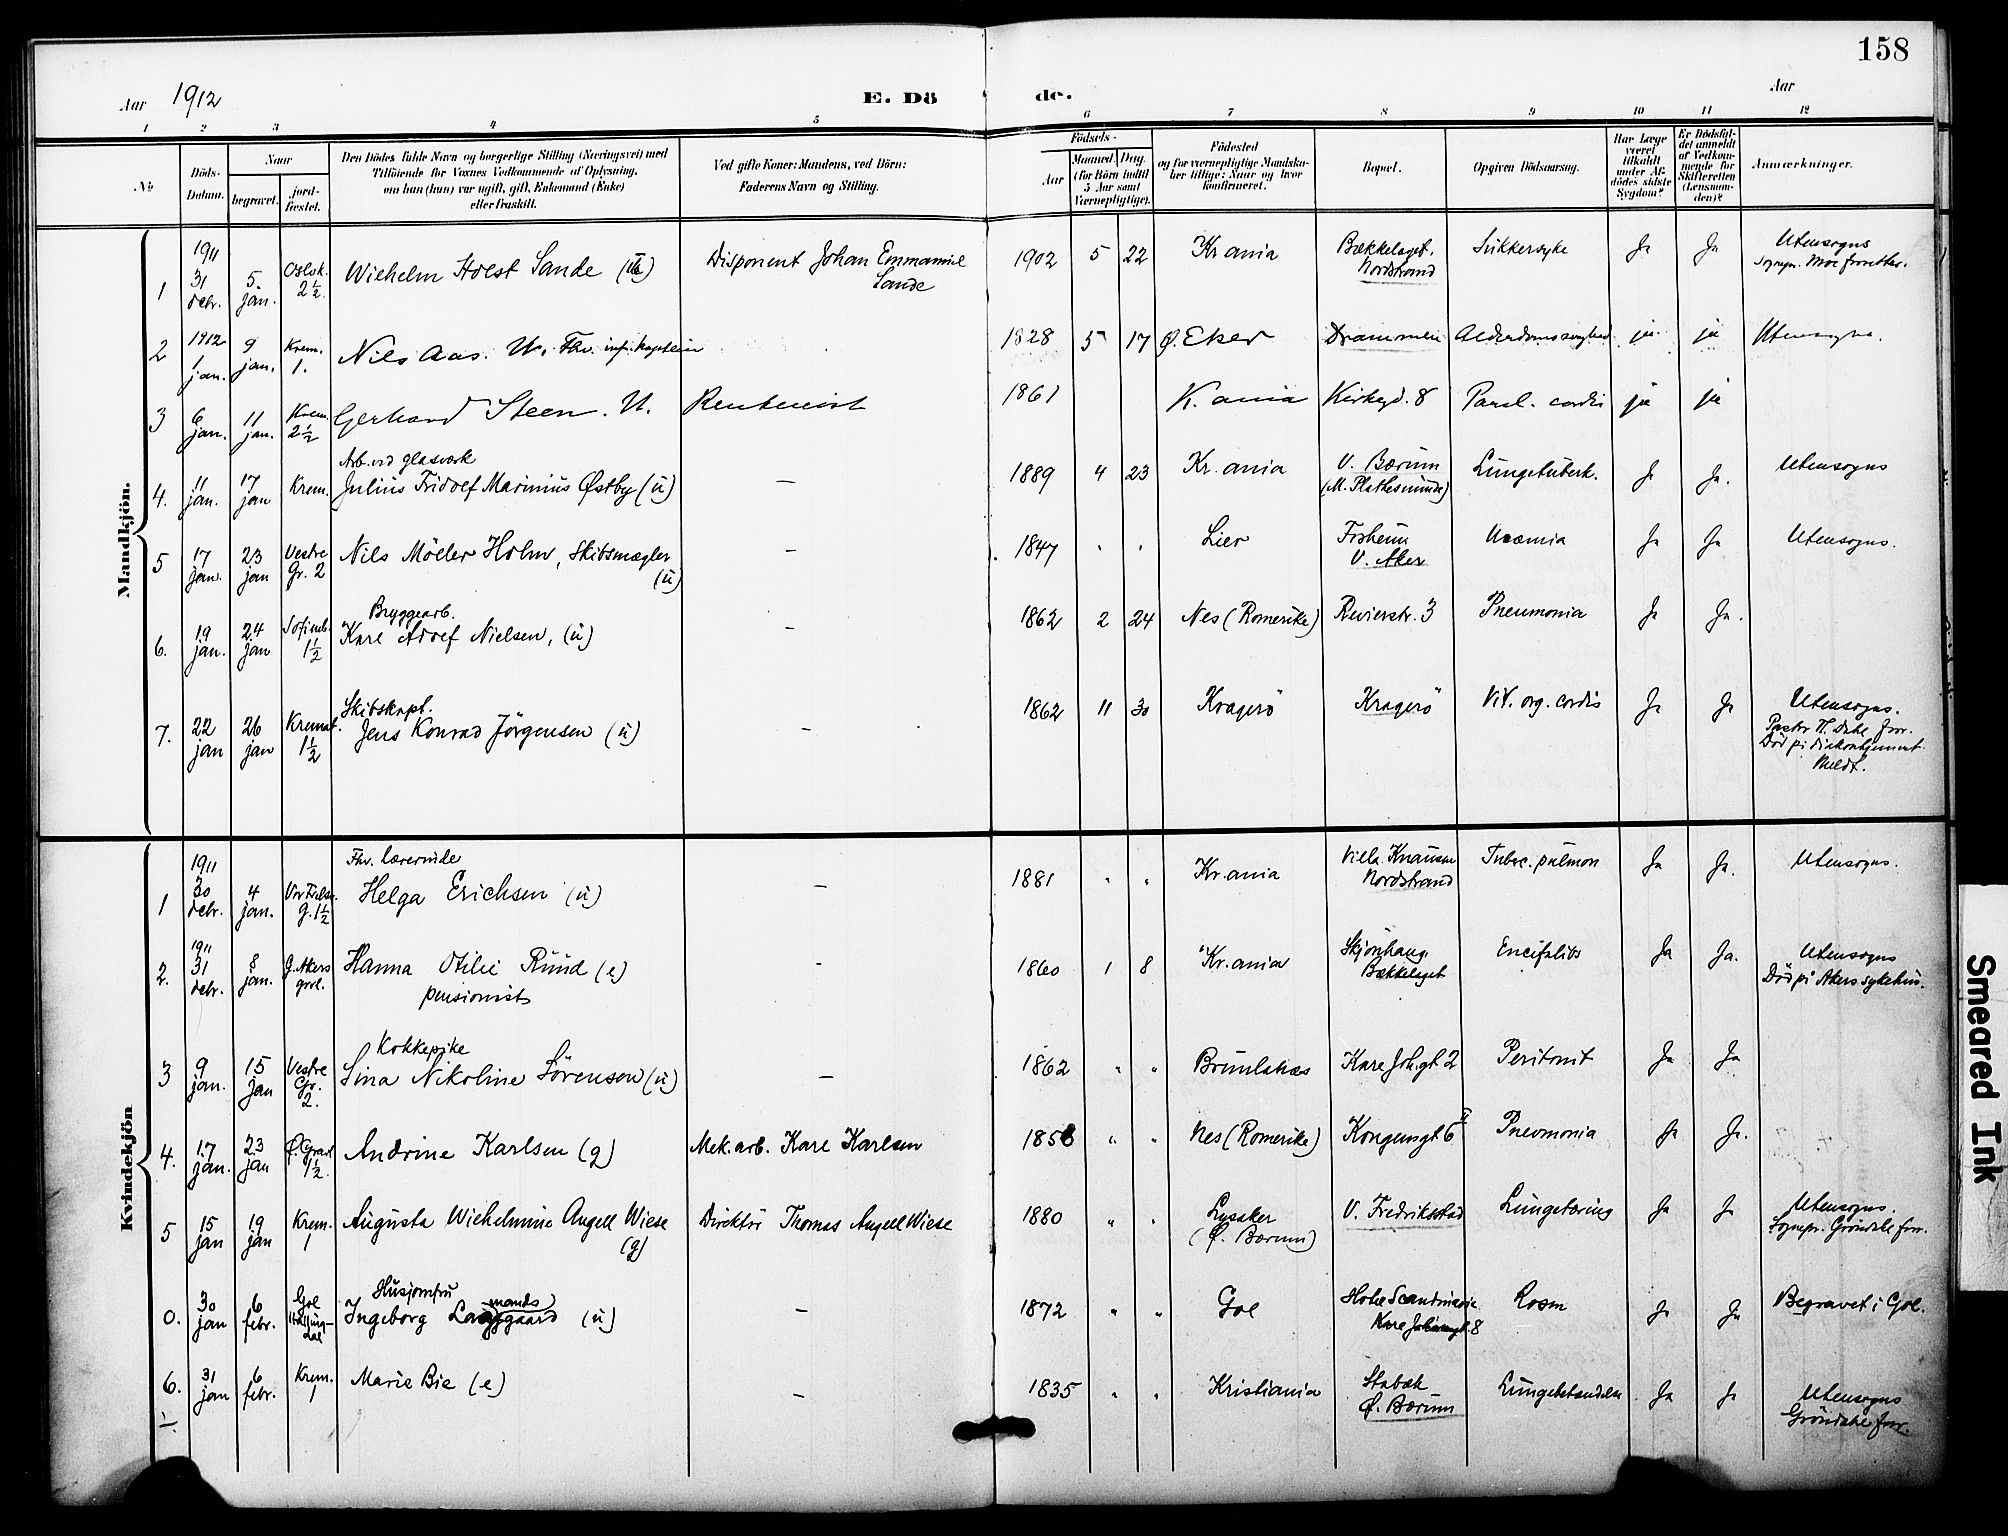 158
Aar 1912
E. Dö
de.
Aar
1 2 3 4 5 6 7 8 9 10 11 12
№
Döds-
Datum.
Naar
begravet.
jord-
fæstet.
Den Dödes fulde Navn og borgerlige Stilling (Næringsvei) med
Tilföiende for Voxnes Vedkommende af Oplysning,
om han (hun) var ugift, gift, Enkemand (Enke)
eller fraskilt.
Ved gifte Koner: Mandens, ved Börn:
Faderens Navn og Stilling.
Födsels-
Aar
Maaned
Dag.
(for Börn indtil
5 Aar samt
Værnepligtige).
Födested
og for værnepligtige Mandska-
ber tillige: Naar og hvor
konfirmeret.
Bopæl.
Opgiven Dödsaarsag.
Har Læge
været
tilkaldt
under Af-
dödes sidste
Sygdom?
Er Dödsfal-
det anmeldt
af Vedkom-
mende for
Skifteretten
(Lensman-
den)?
Anmærkninger.
Mandkjön.
1 1911 31 debr. 5. jan. Oslok. 2½ Wilhelm Holst Sande (u) Disponent Johan Emmanuel Sande 1902 5 22 Kr.ania Bækkelaget. Nordstrand Sukkersyke Ja Ja Utensogns Sognepr. Moe forretter.
2 1912 1 jan. 9 jan. Krem. 1. Nils Aas. U. Fhv. inf. kaptein 1828 5 17 Ø. Eker Drammen Alderdomssvaghed ja ja Utensogns.
3 6 jan. 11 jan. Krem. 2½ Gerhard Steen. U. Rentenist 1861 K.ania Kirkegd. 8 Paral. cordis ja ja
4. 11 jan. 17 jan Krem. Arb. ved glasværk Julius Fridolf Marinius Østby (u) — 1889 4 23 Kr.ania V. Bærum (M. Plathesminde) Lungetuberk. Ja Ja. Utensogns
5 17 jan. 23 jan Vestre Gr. 2 Nils Möller Holm, Skibsmægler (u) — 1847 " " Lier Forheim V. Aker Uræmia Ja Ja Utensogns.
6. 19 jan. 24 jan Sofienb. 1½ Bryggearb. Karl Adolf Nielsen, (u) — 1862 2 24 Nes (Romerike) Revierstr. 3 Pneumonia Ja Ja.
7. 22 jan 26 jan Kremat. 1½ Skibskapt. Jens Konrad Jörgensen (u) — 1862 11 30 Kragerö Kragerö Vit. org. cordis Ja Ja Utensogns. Pastor H. Dahl forr. Död på diakonhjemmet Meldt.
Kvindekjön
1 1911 30 debr. 4 jan. Vor Frelser. G. 1½ Fhv. lærerinde Helga Erichsen (u) — 1881 " " Kr.ania Villa Knausen Nordstrand Tuberc. pulmon Ja Ja. Utensogns.
2. 1911 31 debr. 8 jan. G. Akers grvl. Hanna Otilie Ruud (e) pensionist — 1860 1 8 Kr.ania Skjönhaug Bækkelaget Encifalitis Ja Ja. Utensogns Död på Akers sykehus.
3 9 jan. 15 jan Vestre Gr. 2. Kokkepike Sina Nikoline Sörensen (u) — 1862 " " Brunlanæs Karl Joh. gt 2 Peritonit Ja Ja
4. 17 jan. 23 jan Ø. Gravl 1½. Andrine Karlsen (g) Mek. arb. Karl Karlsen 1858 " " Nes (Romerike) Kongensgt. 6 II Pneumonia Ja Ja.
5 15 jan 19 jan Krem. 1 Augusta Wilhelmine Angell Wiese (g) Direktör Thomas Angell Wiese 1880 " " Lysaker (Ø. Bærum) V. Fredrikstad Lungetæring Ja Ja Utensogns. Sognepr. Gröndahl forr.
0. 30 jan 6 febr. Gol Hallingdal Husjomfru Ingeborg (u) — 1872 " " Gol Hotel Scandinavie Karl Johansgt. 8 Rosen Ja Ja Begravet i Gol.
6. 31 jan 6 febr. Krem. 1 Marie Bie (e) — 1835 " " Kristiania Stabæk Ø. Bærum Lungebetændelse Ja Ja Utensogns Gröndahl forr.
Smeared Ink